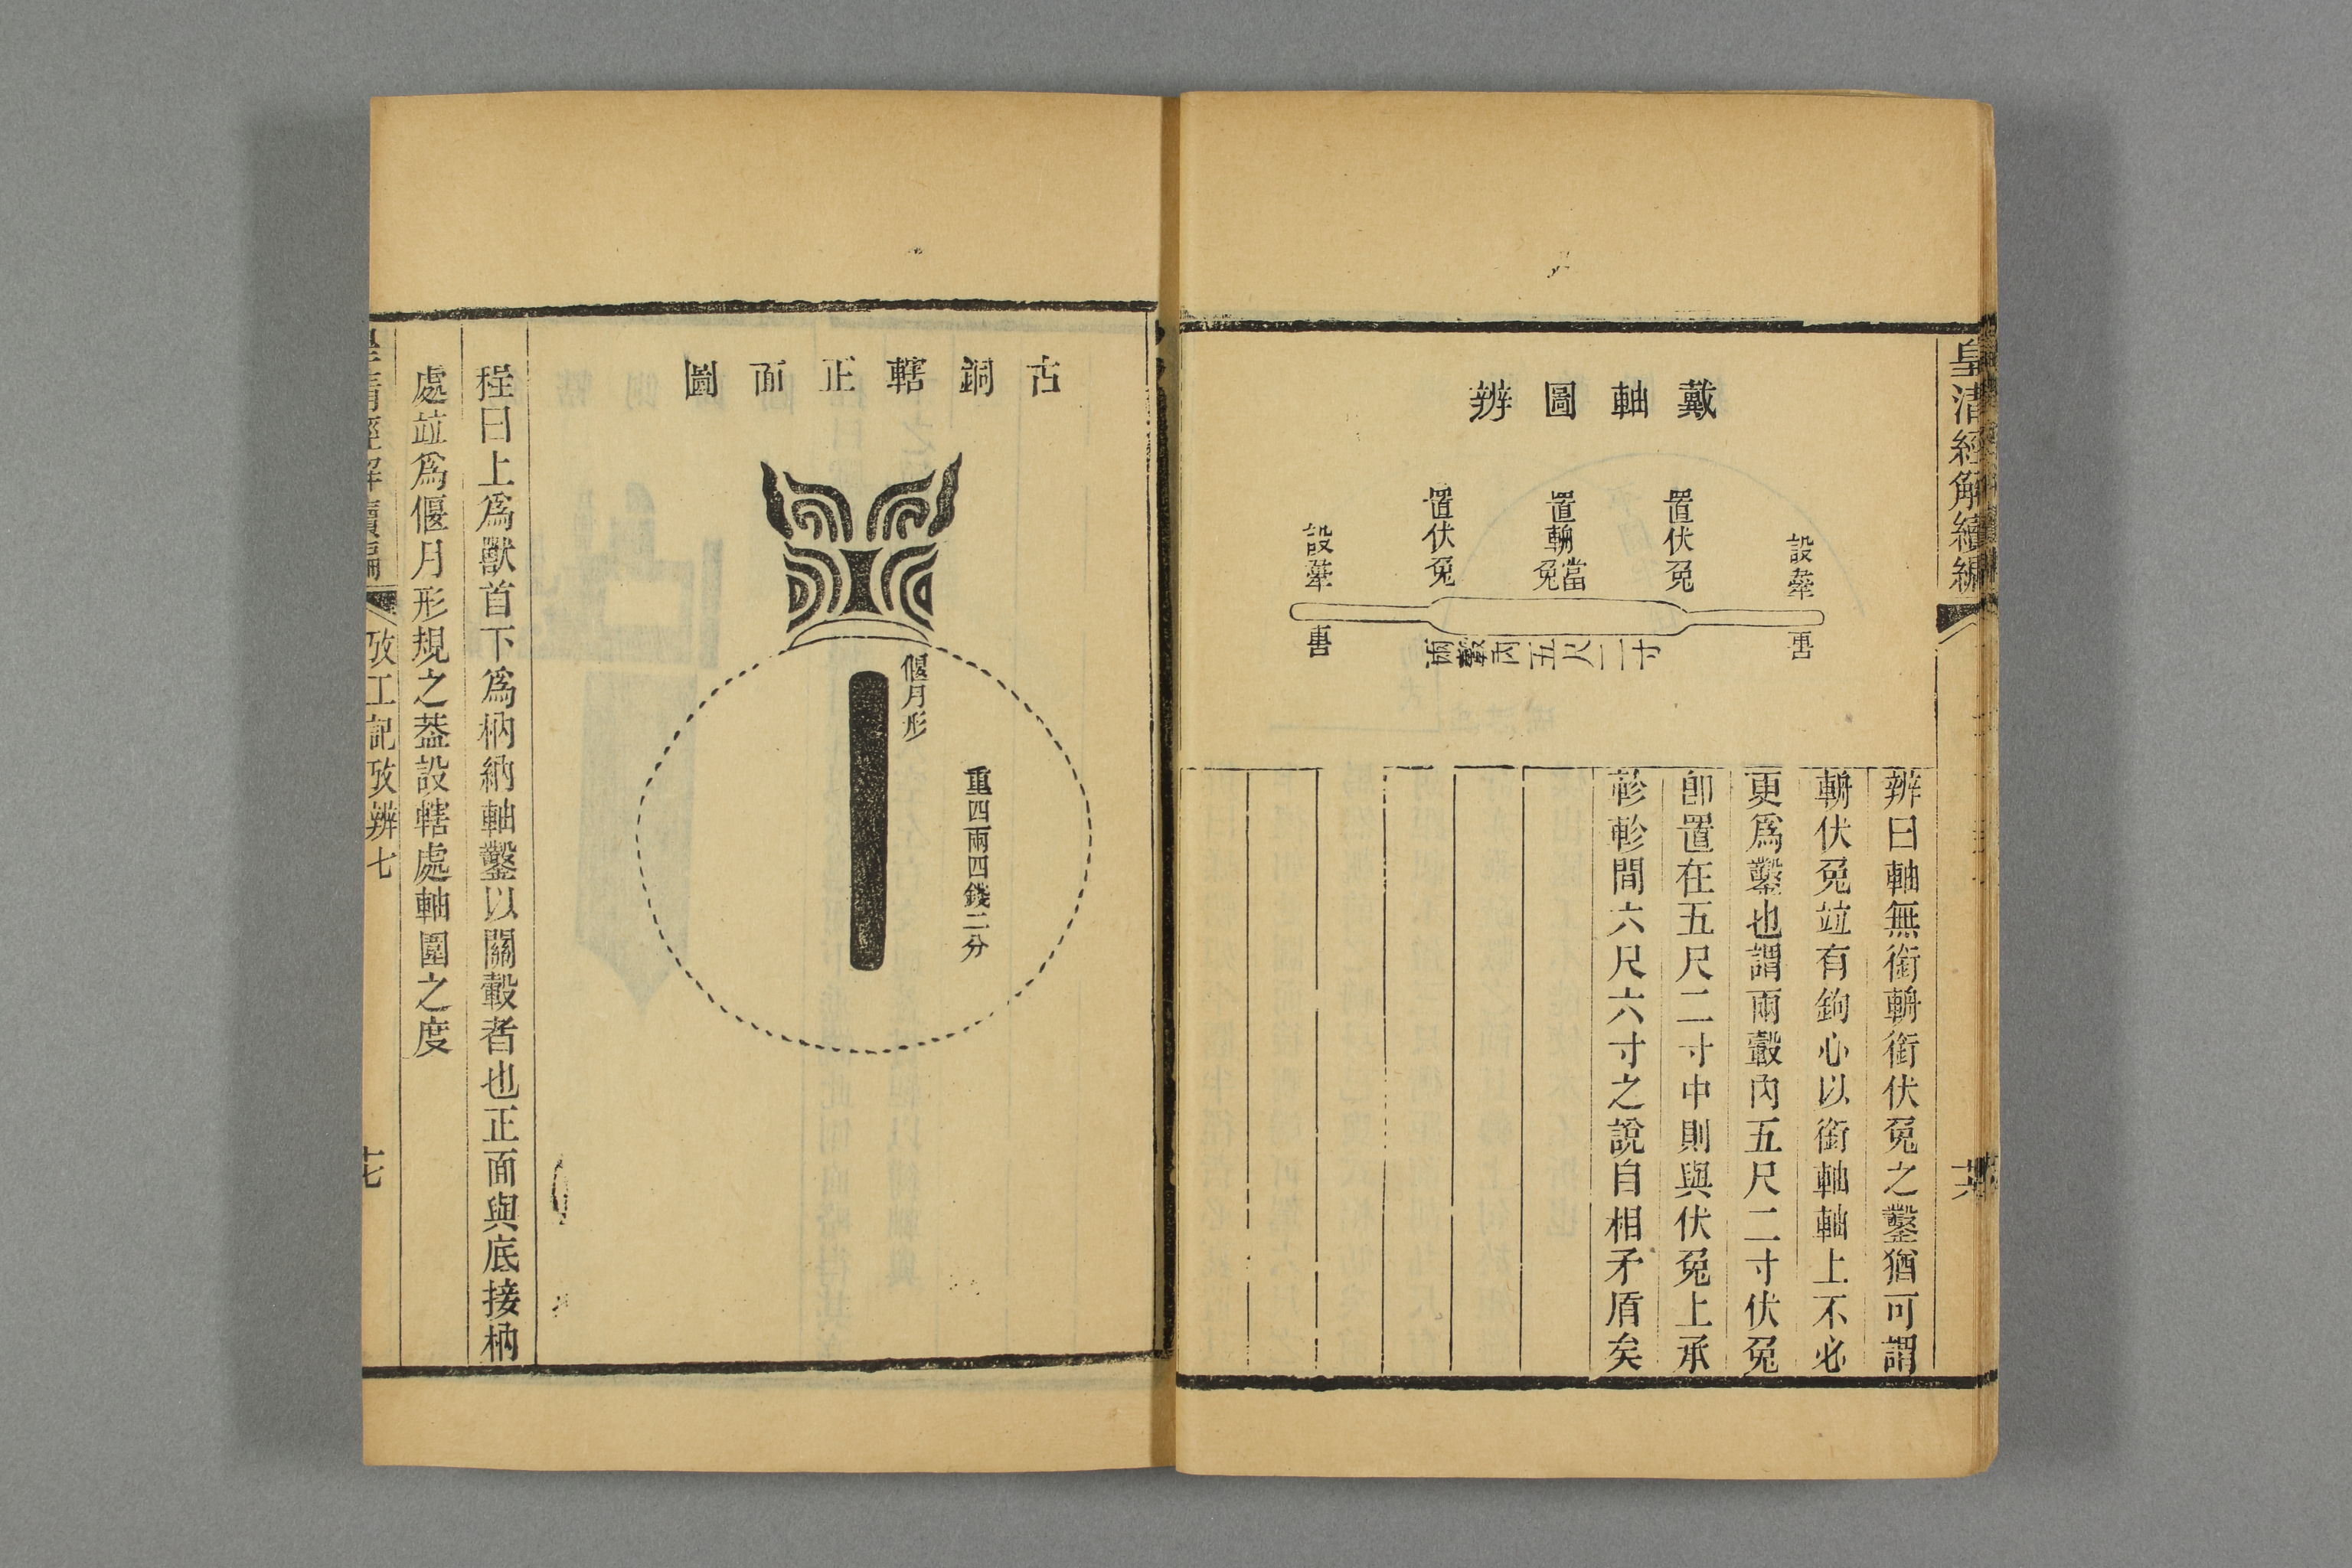 皇清經解續編
戴軸圖辨
設舝
置伏兔
置輈當兔
置伏兔
設舝
軎
兩轂內五尺二寸
軎
辨曰軸無銜輈銜伏兔之鑿猶可謂
輈伏兔竝有鉤心以銜軸軸上不必
更爲鑿也謂兩轂內五尺二寸伏兔
卽置在五尺二寸中則與伏兔上承
軫軫間六尺六寸之說自相矛盾矣
古銅轄正面圖
偃月形
重四兩四錢二分
程曰上爲獸首下爲枘納軸鑿以關轂者也正面與底接枘
處竝爲偃月形規之葢設轄處軸圍之度
皇清經解續編
攷工記攷辨七